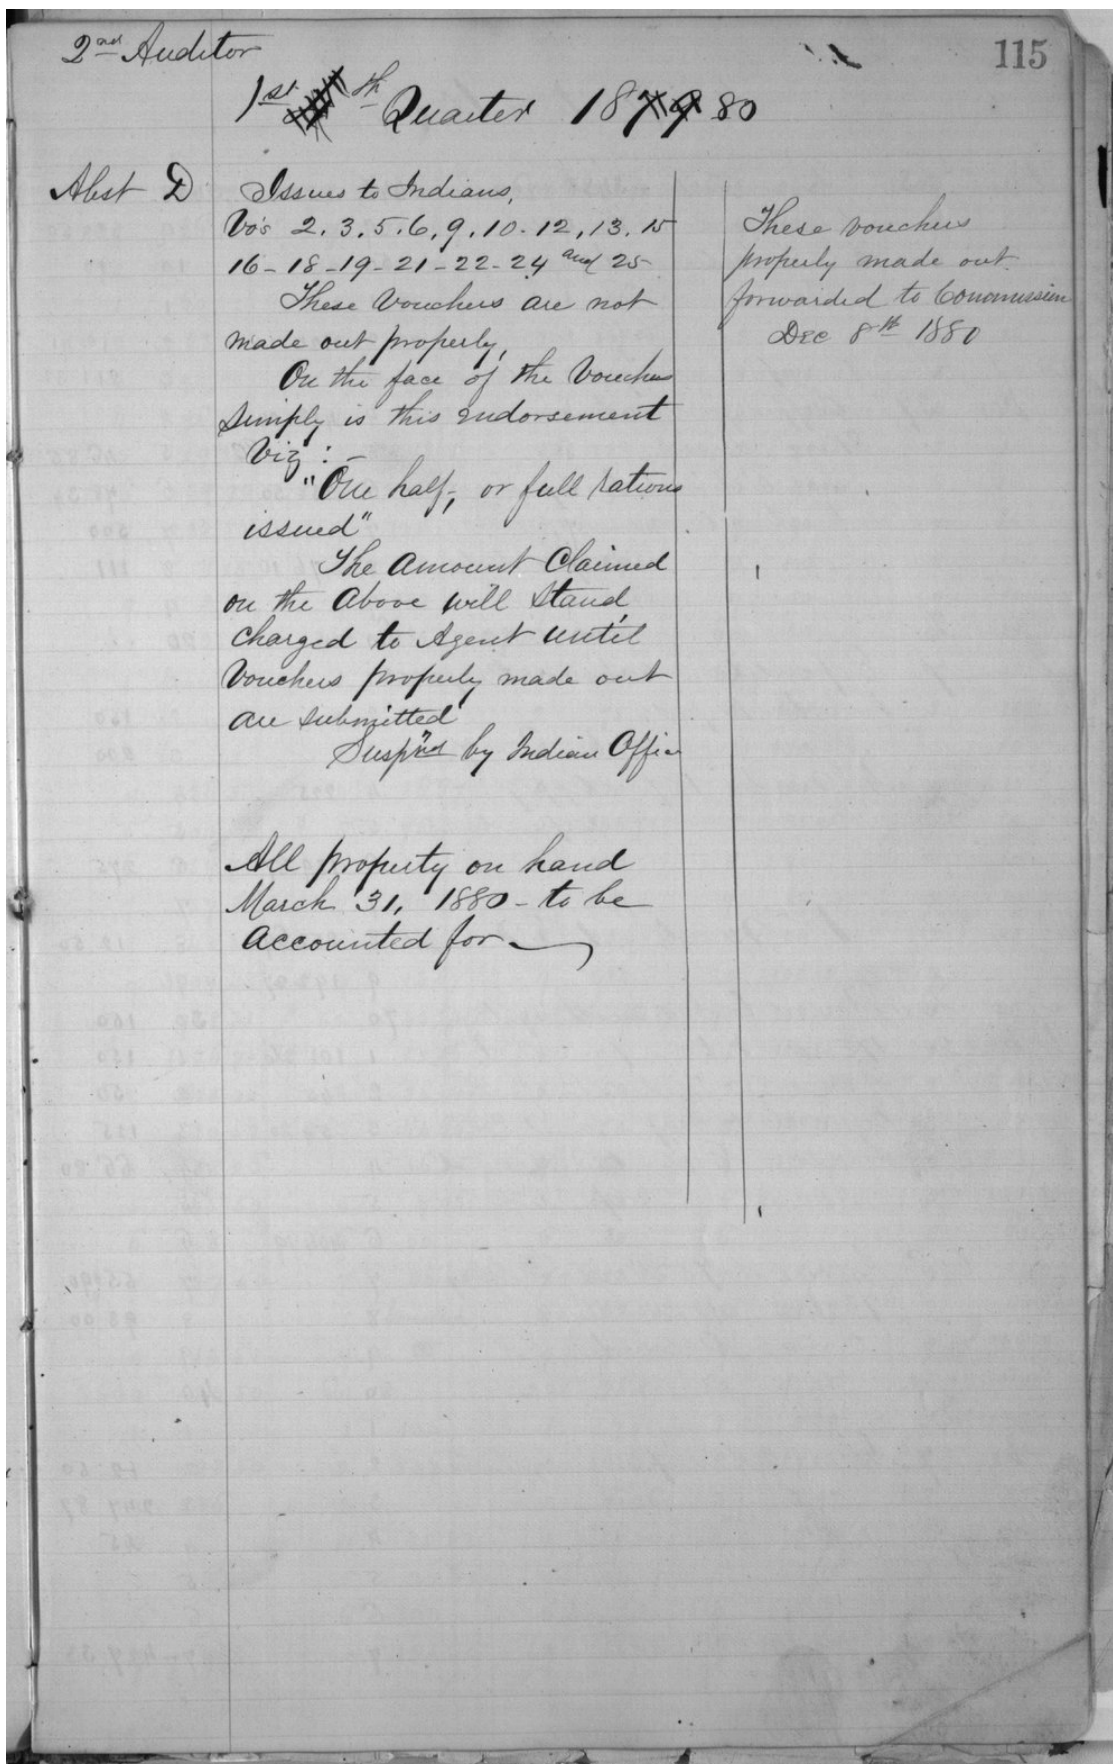 2nd Auditor
115
1st th Quarter 187980
Abst D
Issues to Indians,
Vo's 2, 3, 5, 6, 9, 10 - 12, 13, 15
16 - 18 - 19 - 21 - 22 - 24 and 25
These Vouchers are not
made out properly,
On the face of the Vouchers
simply is this endorsement
Viz : -
"One half, or full rations
issued"
The Amount Claimed
on the Above will Stand,
Charged to Agent until
Vouchers properly made out
are submitted
by Indian Office
All property on hand
March 31, 1880 - to be
accounted for
These vouchers
properly made out
forwarded to Commission
Dec 8th 1880